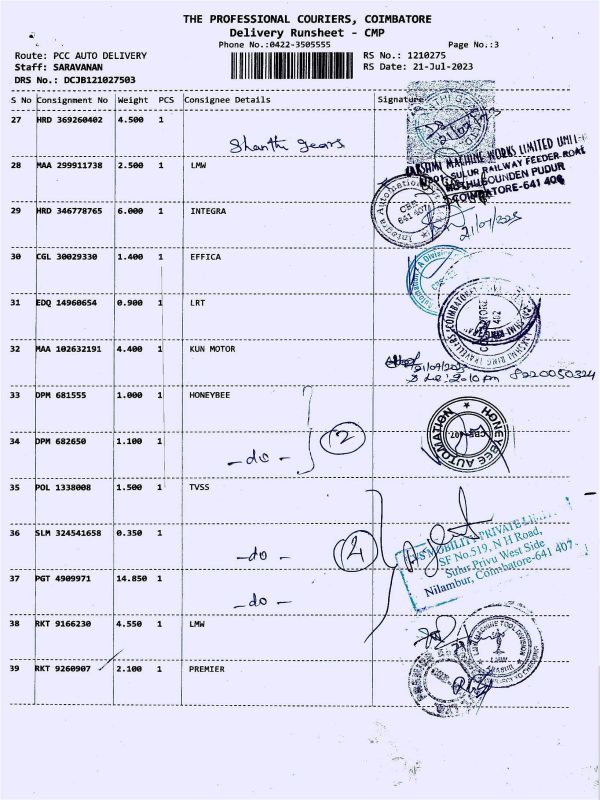 THE PROFESSIONAL COURIERS, COIMBATORE
Delivery Runsheet - CMP
Phone No.:0422-3505555 Page No.:3
Route: PCC AUTO DELIVERY RS No.: 1210275
Staff: SARAVANAN RS Date: 21-Jul-2023
DRS No.: DCJB121027503
S No Consignment No Weight PCS Consignee Details Signature
27 HRD 369260402 4.500 1
Shanthi Gears
28 MAA 299911738 2.500 1 LMW
LAKSHMI MACHINE WORKS LIMITED UNIT-I
SULUR RAILWAY FEEDER ROAD
COIMBATORE-641 406
29 HRD 346778765 6.000 1 INTEGRA
Integra Automation
CBE
641 407
30 CGL 30029330 1.400 1 EFFICA
31 EDQ 14960654 0.900 1 LRT
32 MAA 102632191 4.400 1 KUN MOTOR
8220050324
33 DPM 681555 1.000 1 HONEYBEE
HONEYBEE AUTOMATION
34 DPM 682650 1.100 1
- do - 2
35 POL 1338008 1.500 1 TVSS
36 SLM 324541658 0.350 1
- do -
MOBILITY PRIVATE
SF No.519, N H Road,
Sulur Privu West Side
Nilambur, Coimbatore-641 407
37 PGT 4909971 14.850 1
- do -
38 RKT 9166230 4.550 1 LMW
39 RKT 9260907 2.100 1 PREMIER